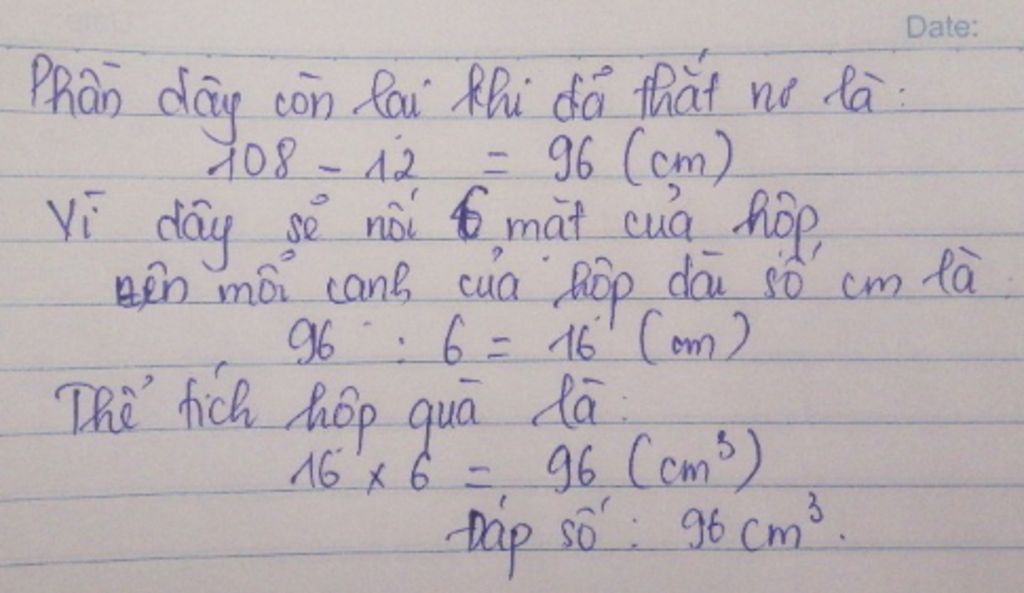 Date:
Phần dây còn lại khi đã thắt nơ là:
108 - 12 = 96 (cm)
Vì dây sẽ nối 6 mặt của hộp
nên mỗi cạnh của hộp dài số cm là:
96 : 6 = 16 (cm)
Thể tích hộp quà là:
16 x 6 = 96 (cm³)
Đáp số: 96 cm³.